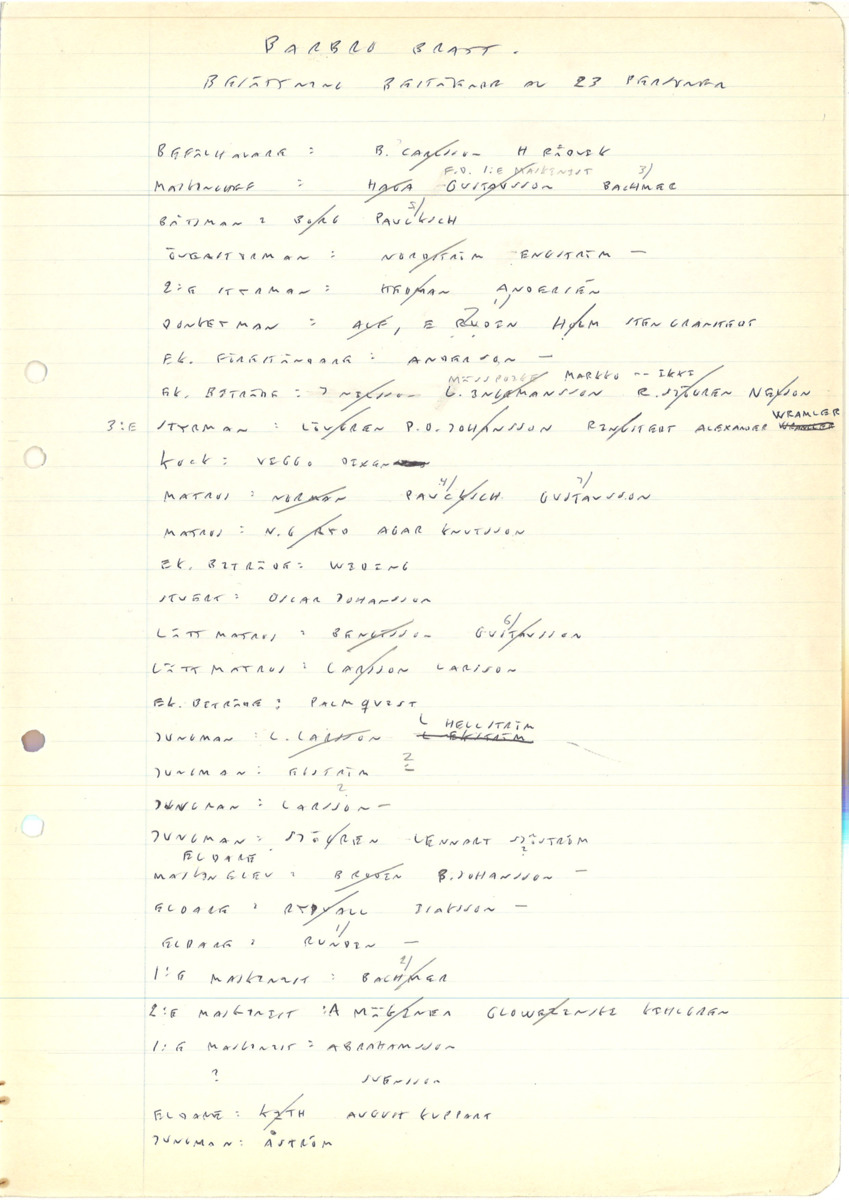 BARBRO BRATT.
BESÄTTNING BESTÅENDE AV 23 PERSONER
BEFÄLHAVARE : B. CARLSSON H RÅDVIK
F.D. 1:E MASKINIST 3/
MASKINCHEF : HAGA GUSTAVSSON BACHMER
5/
BÅTSMAN : BORG PAUCKSCH
ÖVERSTYRMAN : NORDSTRÖM ENGSTRÖM —
2:E STYRMAN : HEDMAN ANDERSÉN
DONKEYMAN : ALF, E RUDÉN HOLM STEN GRANSTEDT
EK. FÖRESTÅNDARE : ANDERSSON —
MÄSSPOJKE MARKKO -- IKKI
EK. BITRÄDE : J NILSSON L. INGEMANSSON R. SJÖGREN NELSON
WRAMLER
3:E STYRMAN : LÖVGREN P.O. JOHANSSON RINGSTEDT ALEXANDER
KOCK : VEGGO DIXEN
4/ 7/
MATROS : NORMAN PAUCKSCH GUSTAVSSON
MATROS : N.G RYD AGAR KNUTSSON
EK. BITRÄDE : WIDING
STUERT : OSCAR JOHANSSON
6/
LÄTT MATROS : BENGTSSON GUSTAVSSON
LÄTT MATROS : LARSSON LARSSON
EK. BITRÄDE : PALMQVIST
L HELLSTRÖM
JUNGMAN : L. LARSSON L EKSTRÖM
JUNGMAN : EKSTRÖM 2
2
JUNGMAN : LARSSON —
JUNGMAN : SJÖGREN LENNART SJÖSTRÖM
ELDARE ?
MASKINELEV : BRODIN B. JOHANSSON —
ELDARE : RYDVALL ISAKSSON —
1/
ELDARE : RUNDÉN —
2/
1:E MASKINIST : BACHMER
2:E MASKINIST : A MÄKINEN GLOWEZINSKI KIHLGREN
1:E MASKINIST : ABRAHAMSSON
? SVENSSON
ELDARE : KITH AUGUST KUPPART
JUNGMAN : ÅSTRÖM